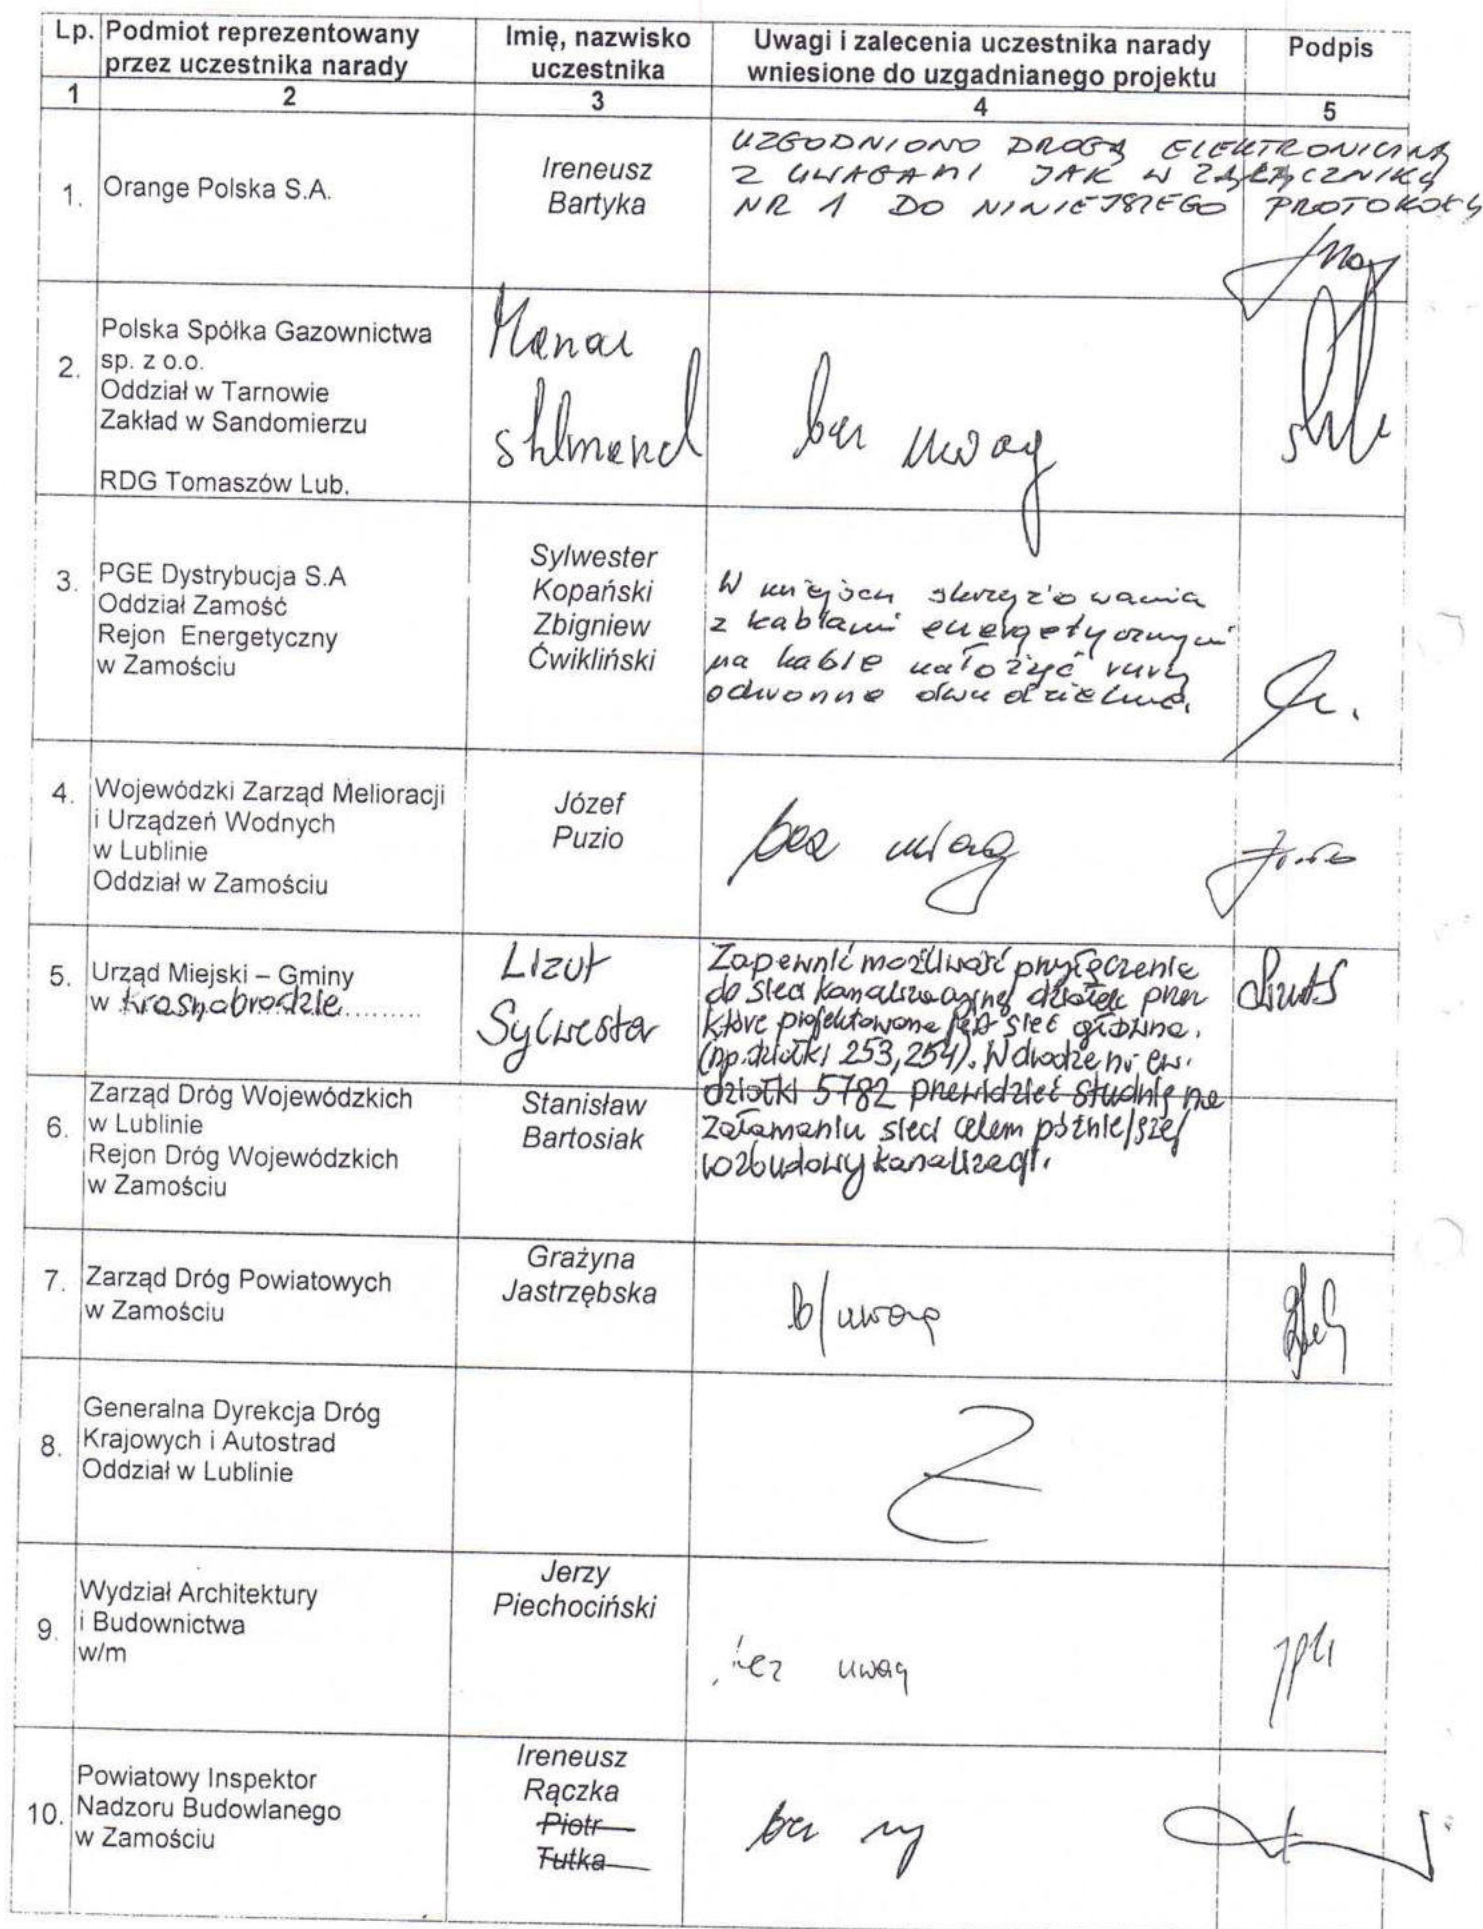 Lp. Podmiot reprezentowany przez uczestnika narady
Imię, nazwisko uczestnika
Uwagi i zalecenia uczestnika narady wniesione do uzgadnianego projektu
Podpis
1 2 3 4 5
1. Orange Polska S.A.
Ireneusz
Bartyka
UZGODNIONO DROGĄ ELEKTRONICZNĄ
Z UWAGAMI JAK W ZAŁĄCZNIKU
NR 1 DO NINIEJSZEGO PROTOKOŁU
2. Polska Spółka Gazownictwa
sp. z o.o.
Oddział w Tarnowie
Zakład w Sandomierzu
RDG Tomaszów Lub.
bez uwag
3. PGE Dystrybucja S.A
Oddział Zamość
Rejon Energetyczny
w Zamościu
Sylwester
Kopański
Zbigniew
Ćwikliński
W miejscu skrzyżowania
z kablami energetycznymi
na kable nałożyć rury
ochronne dwudzielne.
4. Wojewódzki Zarząd Melioracji
i Urządzeń Wodnych
w Lublinie
Oddział w Zamościu
Józef
Puzio
bez uwag
5. Urząd Miejski – Gminy
w Krasnobrodzie........
Lizut
Sylwester
Zapewnić możliwość przyłączenia
do sieci kanalizacyjnej działek przez
które projektowana jest sieć główna.
(np. działki 253, 254). W drodze nr ew.
działki 5782 przewidzieć studnię na
załamaniu sieci celem późniejszej
rozbudowy kanalizacji.
6. Zarząd Dróg Wojewódzkich
w Lublinie
Rejon Dróg Wojewódzkich
w Zamościu
Stanisław
Bartosiak
7. Zarząd Dróg Powiatowych
w Zamościu
Grażyna
Jastrzębska
b/uwag
8. Generalna Dyrekcja Dróg
Krajowych i Autostrad
Oddział w Lublinie
9. Wydział Architektury
i Budownictwa
w/m
Jerzy
Piechociński
bez uwag
10. Powiatowy Inspektor
Nadzoru Budowlanego
w Zamościu
Ireneusz
Rączka
Piotr
Tutka
bez